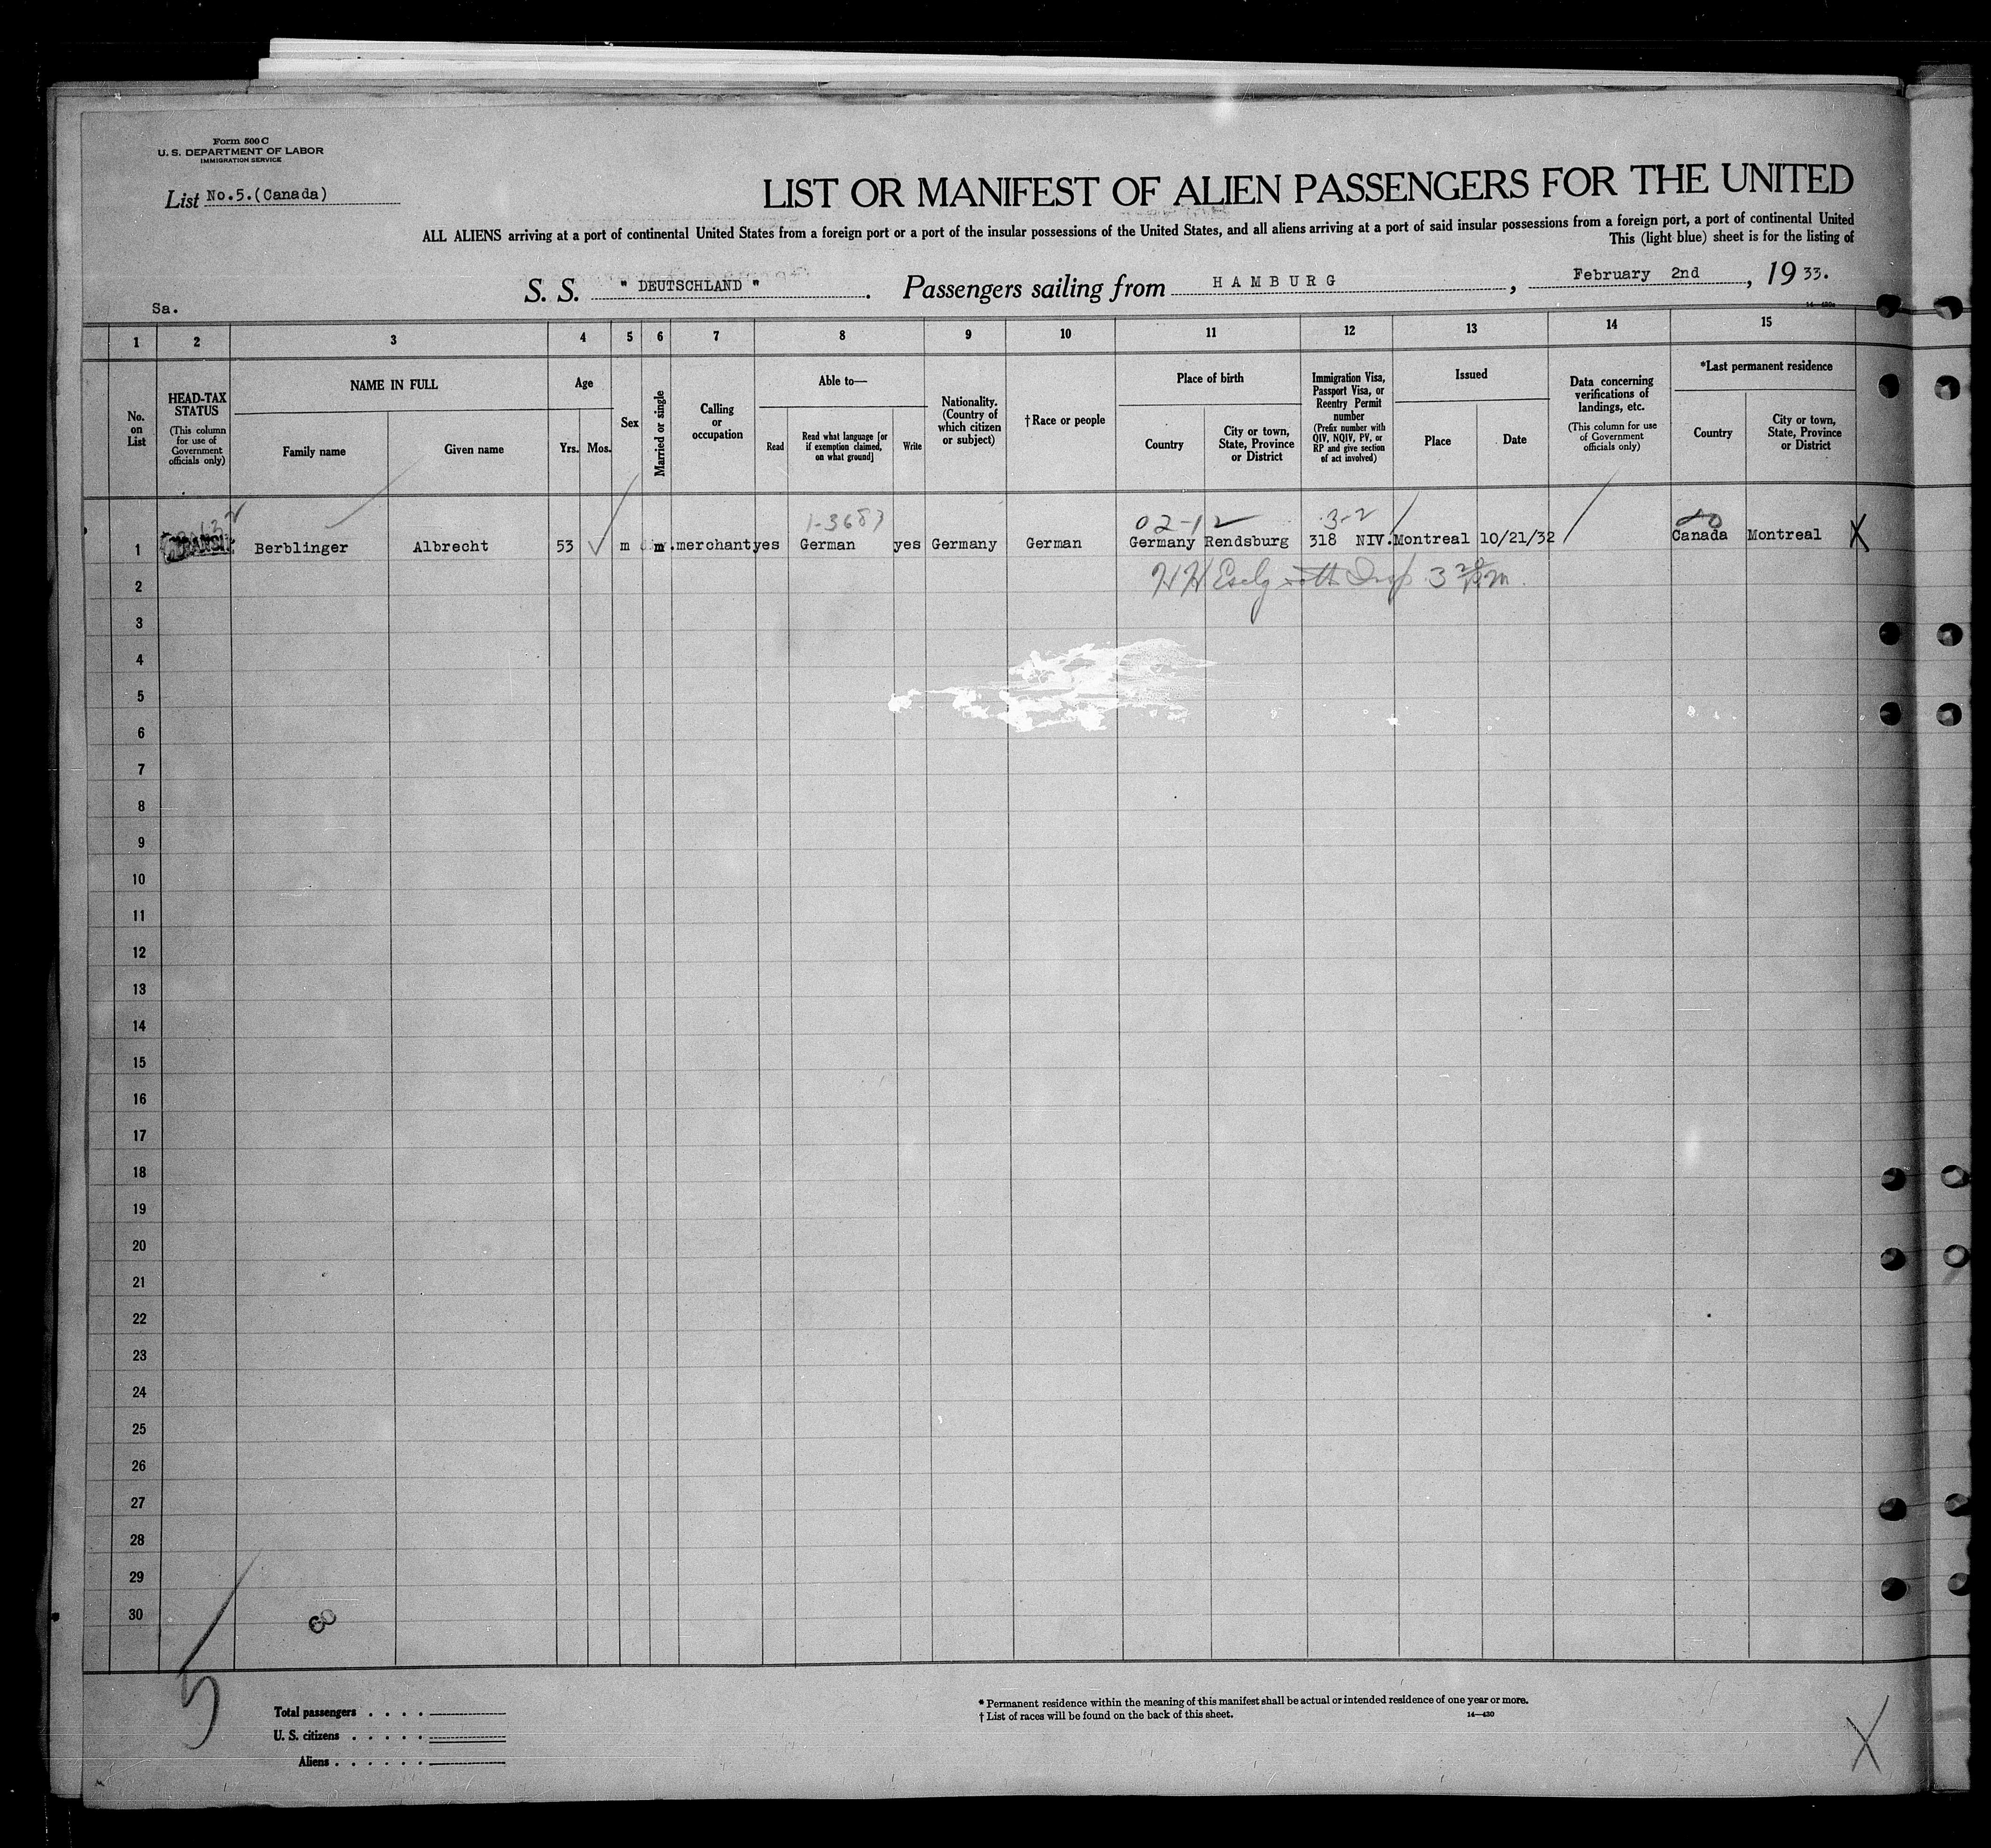 Form 500 C
U. S. DEPARTMENT OF LABOR
IMMIGRATION SERVICE
List No.5.(Canada)
LIST OR MANIFEST OF ALIEN PASSENGERS FOR THE UNITED
ALL ALIENS arriving at a port of continental United States from a foreign port or a port of the insular possessions of the United States, and all aliens arriving at a port of said insular possessions from a foreign port, a port of continental United
This (light blue) sheet is for the listing of
S. S. " DEUTSCHLAND ". Passengers sailing from HAMBURG, February 2nd, 1933.
Sa.
1 2 3 4 5 6 7 8 9 10 11 12 13 14 15
No. on List
HEAD-TAX STATUS
(This column for use of Government officials only)
NAME IN FULL
Family name
Given name
Age
Yrs. Mos.
Sex
Married or single
Calling or occupation
Able to—
Read
Read what language [or if exemption claimed, on what ground]
Write
Nationality. (Country of which citizen or subject)
† Race or people
Place of birth
Country
City or town, State, Province or District
Immigration Visa, Passport Visa, or Reentry Permit number
(Prefix number with QIV, NQIV, PV, or RP and give section of act involved)
Issued
Place
Date
Data concerning verifications of landings, etc.
(This column for use of Government officials only)
*Last permanent residence
Country
City or town, State, Province or District
1-3687 02-12 3-2
1 TRANSIT Berblinger Albrecht 53 m m. merchant yes German yes Germany German Germany Rendsburg 318 NIV. Montreal 10/21/32 Canada Montreal X
2
3
4
5
6
7
8
9
10
11
12
13
14
15
16
17
18
19
20
21
22
23
24
25
26
27
28
29
30
5
Total passengers . . . .
U. S. citizens . . . . .
Aliens . . . . . .
* Permanent residence within the meaning of this manifest shall be actual or intended residence of one year or more.
† List of races will be found on the back of this sheet. 14—430
X